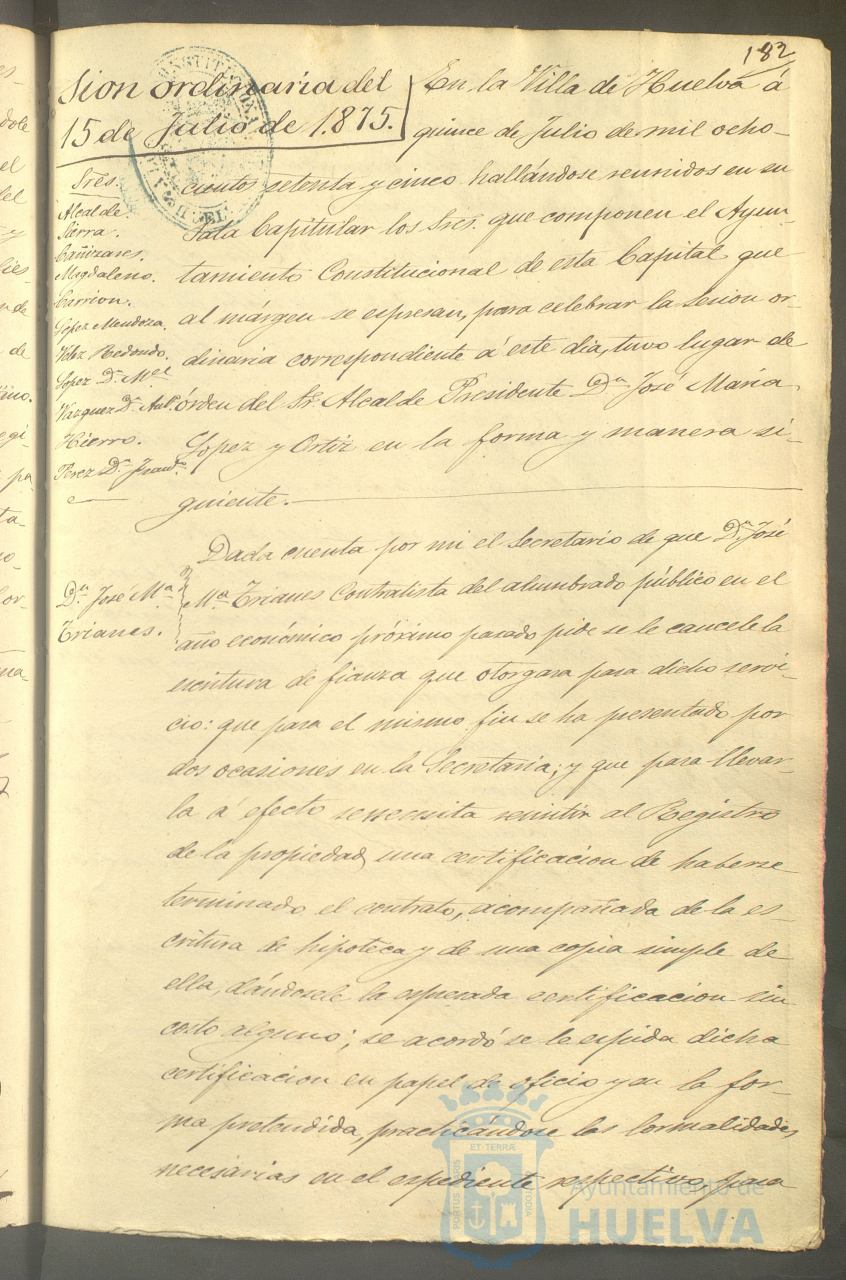 182
sion ordinaria del
15 de Julio de 1.875.
Sres.
Alcalde
Sierra.
Cañizares.
Magdaleno.
Carrion.
Lopez Mendoza.
Velez Redondo.
Lopez Dn. Mel
Vazquez Dn. Ant.
Hierro.
Perez Dn. Juan
En la Villa de Huelva á
quince de Julio de mil ocho-
cientos setenta y cinco hallándose reunidos en su
Sala Capitular los Sres. que componen el Ayun-
tamiento Constitucional de esta Capital que
al márgen se espresan, para celebrar la sesion or-
dinaria correspondiente á este dia, tuvo lugar de
órden del Sr. Alcalde Presidente Dn. José Maria
Lopez y Ortiz en la forma y manera si-
guiente.
Dn. José Ma.
Trianes.
Dada cuenta por mi el Secretario de que Dn. José
Ma. Trianes Contratista del alumbrado público en el
año económico próximo pasado pide se le cancele la
escritura de fianza que otorgara para dicho servi-
cio: que para el mismo fin se ha presentado por
dos ocasiones en la Secretaria; y que para llevar-
la á efecto se necesita remitir al Registro
de la propiedad una certificacion de haberse
terminado el contrato, acompañada de la es-
critura de hipoteca y de una copia simple de
ella, dándosele la espresada certificacion sin
costo alguno; se acordó se le espida dicha
certificacion en papel de oficio y en la for-
ma pretendida, practicándose las formalidades
necesarias en el espediente respectivo, para
ET TERRÆ
PORTUS MARIS
CUSTODIA
Ayuntamiento de
HUELVA